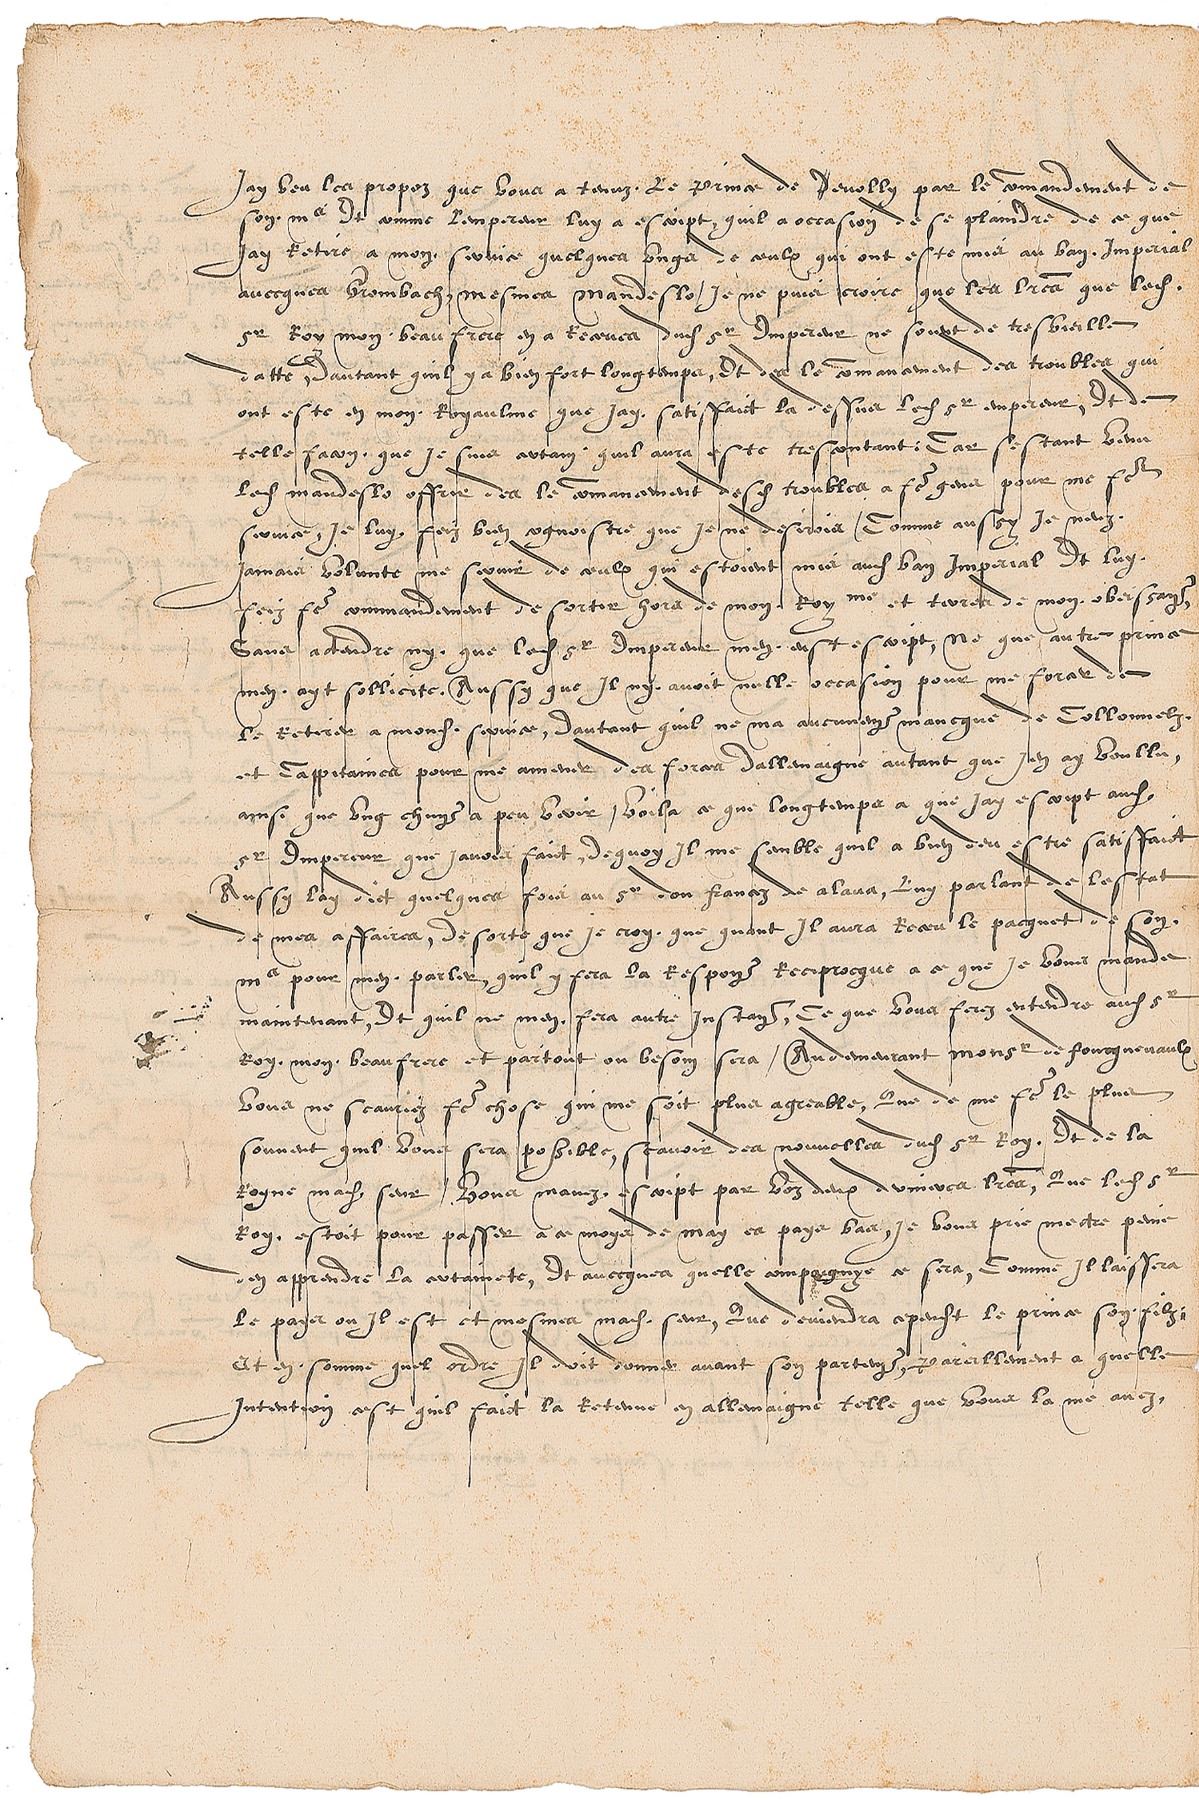 Jay veu les propoz que vous a tenuz. Le Prince de Devolly par le comandement de
son. mte Et comme Lempereur luy a escript, quil a occasion de se plaindre de ce que
Jay Retire a mon. service quelques ungs de ceulx qui ont este mis au ban. Imperial
avecques Grombach, mesmes Mandeslo / Je ne puis croire que les lres que led.
sr Roy mon. beau frere en a Receues dud sr Empereur ne soient de tresvieille
datte, Dautant quil y a bien fort longtemps, Et des le comancement des troubles qui
ont este en mon. Royaulme que Jay. satisfaict la dessus led sr empereur, Et de
telle facon. que Je suis certain. quil aura este trescontant: Car sestant venu
led mandeslo offrir des le comancement desd troubles a fe gens pour me fe
service, Je luy. feiz bien cognoistre que Je ne desirois / Comme aussy Je nenz.
Jamais volunte me servir de ceulx qui estoient mis aud ban Imperial Et luy.
feiz fe commandement de sortir hors de mon. Royme et terres de mon. obeissance,
Sans actendre ny. que led sr Empereur men. eust escript, Ne que autre prince
men. ayt sollicite. Aussy que Il ny. avoit nulle occasion pour me forcer de
le Retirer a mond. service, Dautant quil ne ma aucunemt mancque de Collonnelz.
et Cappitaines pour me amener des forces Dallemaigne autant que Jen ay voullu,
ainsi que ung chun a peu veoir / Voila ce que longtemps a que Jay escript aud.
sr Empereur que Javois faict, Dequoy Il me semble quil a bien deu estre satisfaict
Aussy lay dict quelques fois au sr don frances de alava, Luy parlant de lestat
de mes affaires, De sorte que Je croy. que quant Il aura Receu le pacquet de son.
mte pour men. parler, quil y fera la Response Reciprocque a ce que Je vous mande
maintenant, Et quil ne men. fera autre Instance, Ce que vous ferez entendre aud sr
Roy. mon. beau frere et partout ou besoin sera / Au demeurant Monsr de fourquevaulx
vous ne scauriez fe chose qui me soit plus agreable, Que de me fe le plus
souvent quil vous sera possible, scavoir des nouvelles dud sr Roy. Et de la
Royne mad. seur / Vous mavez. escript par voz deux dernieres lres, Que led sr
Roy. estoit pour passer a ce moys de may es pays bas, Je vous prie mectre peine
den apprendre la certainete, Et avecques quelle compaignye ce sera, Comme Il laissera
le pays ou Il est et mesmes mad. seur, Que deviendra cependt le prince son. filz:
Et en. somme quel ordre Il doit donner avant son partemt, Pareillement a quelle
Intention cest quil faict la Retenue en allemaigne telle que vous la me avez,